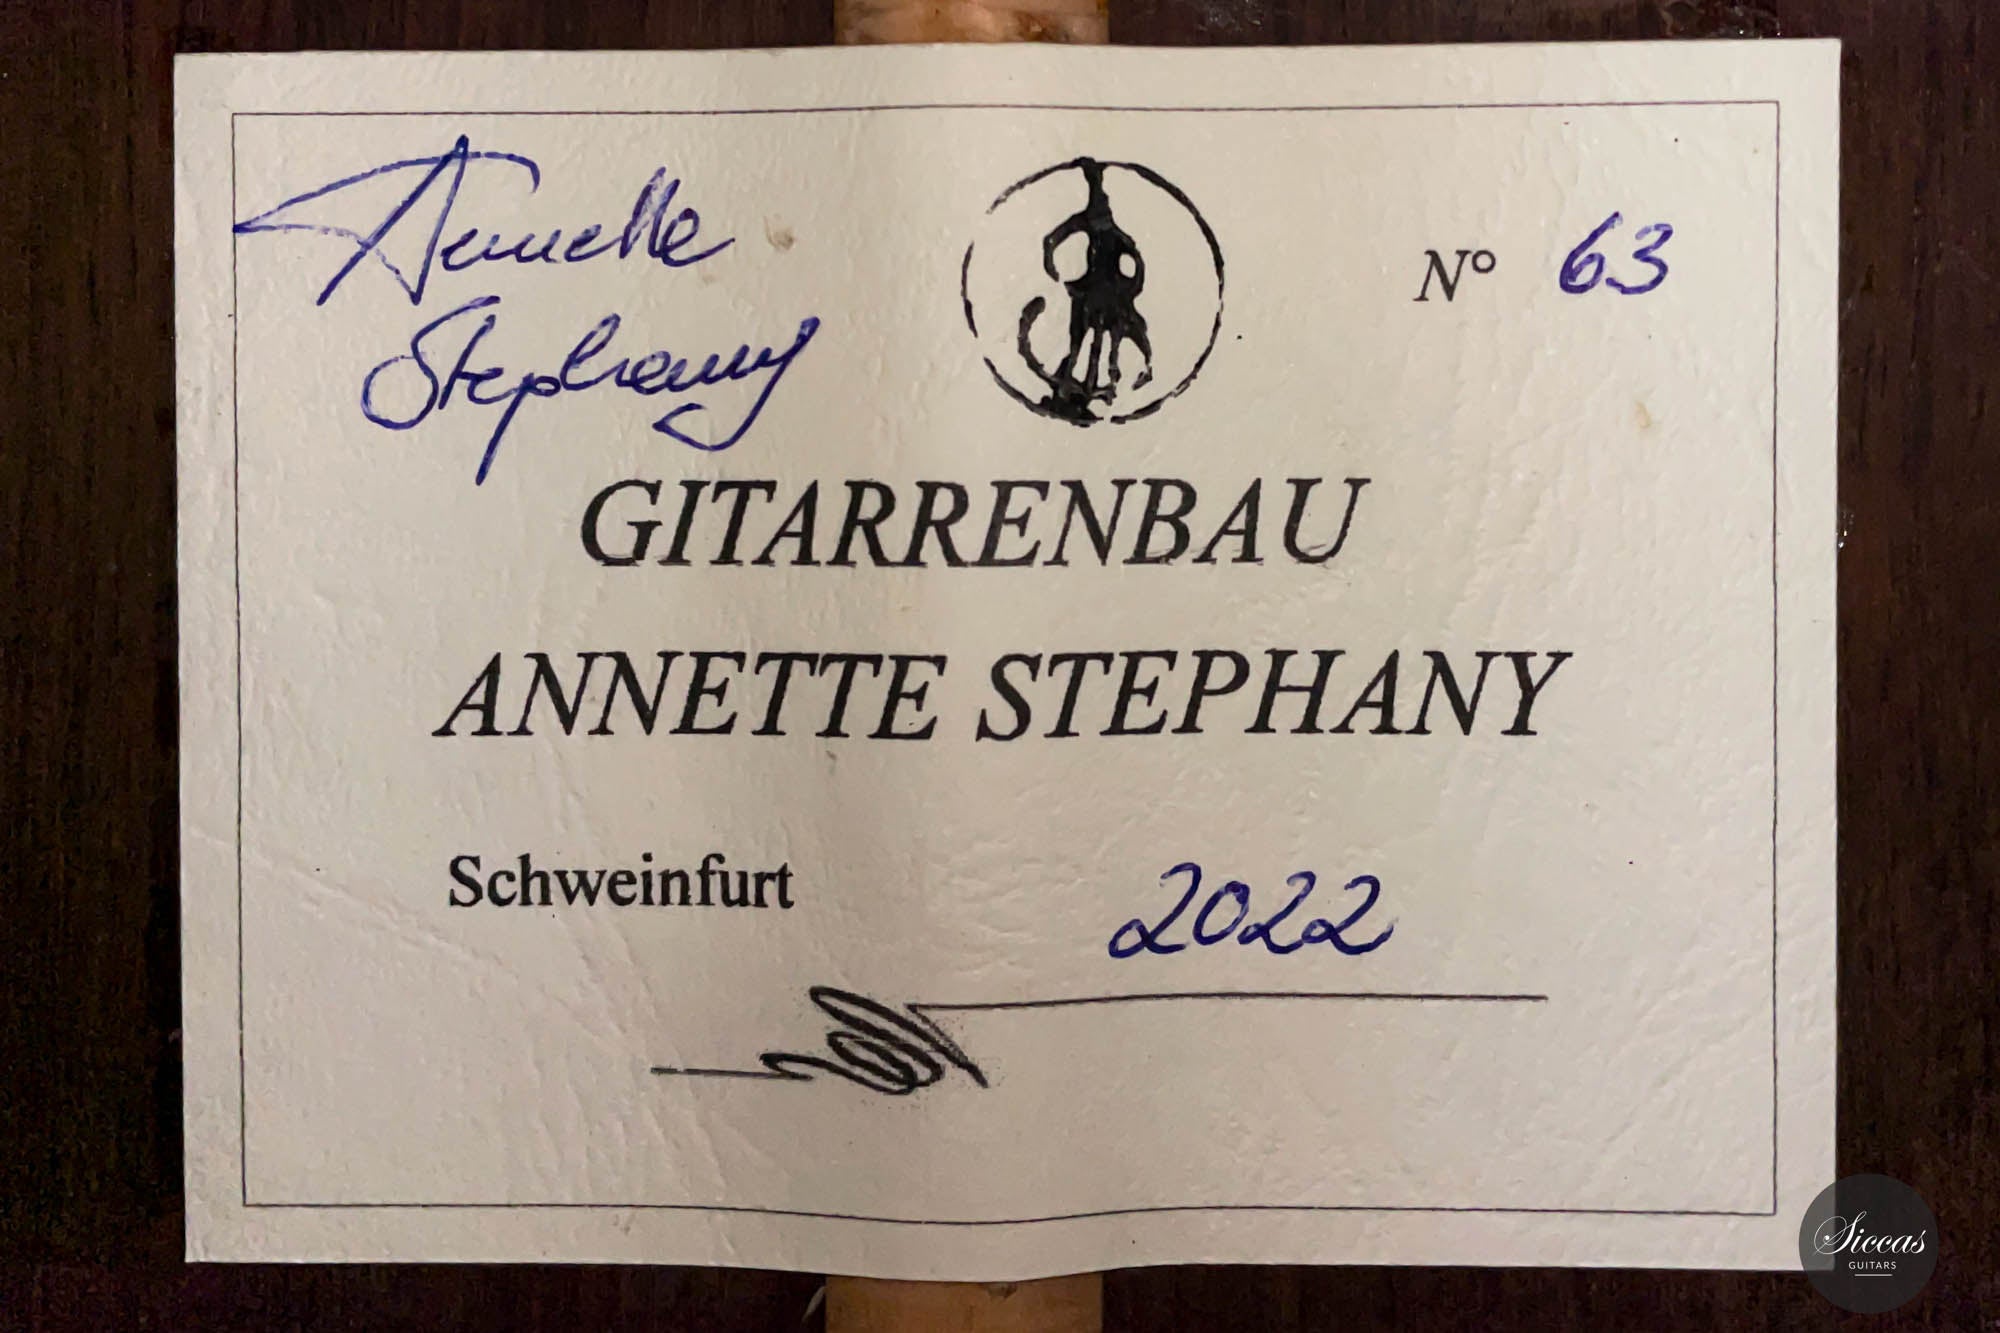 Annette
Stephany
N° 63
GITARRENBAU
ANNETTE STEPHANY
Schweinfurt 2022
Siccas
GUITARS